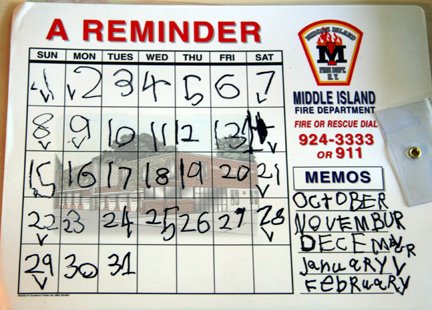 A REMINDER
SUN MON TUES WED THU FRI SAT
1 2 3 4 5 6 7
8 9 10 11 12 13 14
15 16 17 18 19 20 21
22 23 24 25 26 27 28
29 30 31
MIDDLE ISLAND
M
FIRE DEPT.
N.Y.
MIDDLE ISLAND
FIRE DEPARTMENT
FIRE OR RESCUE DIAL
924-3333
OR 911
MEMOS
OCTOBER
NOVEMBUR
DECEMBER
january
February